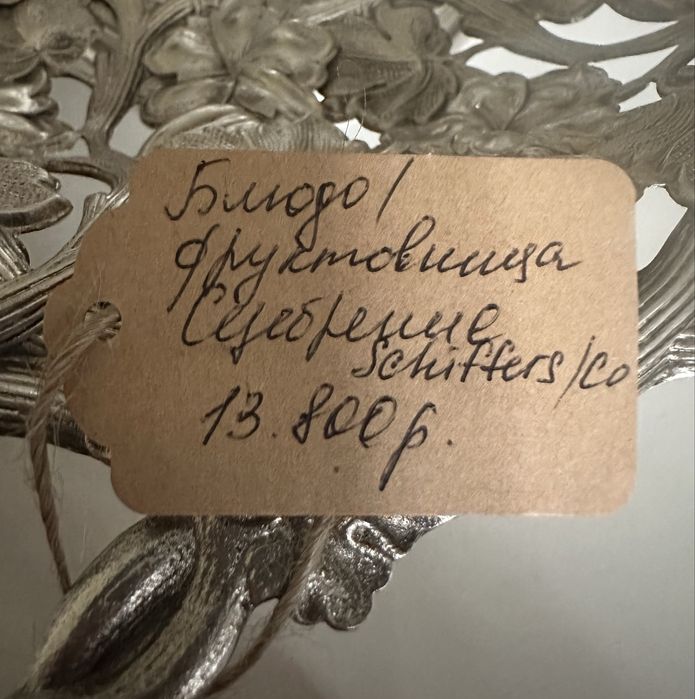 Блюдо/
фруктовница
Серебрение
Schiffers/Co
13.800р.